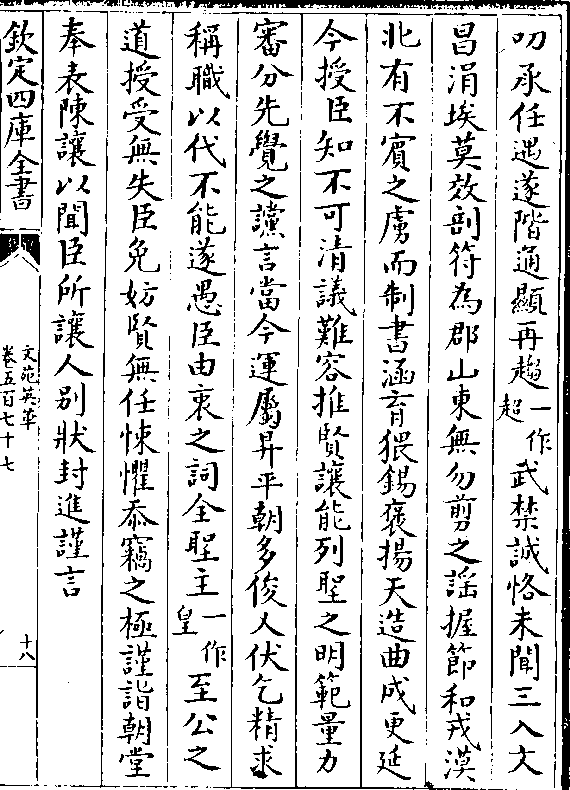 叨承任遇遂階通顯再趨一作超武禁誠恪未聞三入文
昌涓埃莫效剖符為郡山東無勿剪之謡握節和戎漠
北有不賓之虜而制書涵育猥錫褒揚天造曲成更延
今授臣知不可清議難容推賢讓能列聖之明範量力
審分先覺之讜言當今運屬昇平朝多俊乂伏乞精求
稱職以代不能遂愚臣由衷之詞全聖主一作皇至公之
道授受無失臣免妨賢無任悚懼忝竊之極謹詣朝堂
奉表陳讓以聞臣所讓人别狀封進謹言
欽定四庫全書
文苑英華
卷五百七十七
十八